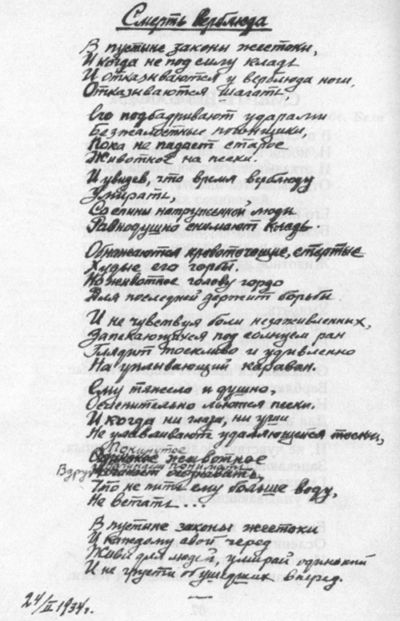 Смерть верблюда
В пустыне законы жестоки,
И когда не под силу кладь
И отказываются у верблюда ноги,
Отказываются шагать
Его подбадривают ударами
Безжалостные погонщики,
Пока не падает старое
Животное на пески.
И увидев, что время верблюду
Умирать,
С спины натруженной люди
Равнодушно снимают кладь.
Обнажаются кровоточащие, стертые
Худые его горбы.
Но животное голову гордо
Для последней держит борьбы
И не чувствуя боли незаживленных,
Запекающихся под солнцем ран
Глядит тоскливо и удивленно
На уплывающий караван.
Ему тяжело и душно,
Ослепительно льются пески.
И когда ни глаза, ни уши
Не улавливают удаляющейся тоски,
Покинутое
животное
Вдруг начинает понимать
Что не пить ему больше воду,
Не встать ...
В пустыне законы жестоки
И каждому свой черед
Живи для людей, умирай одинокий
И не грусти об ушедших вперед.
24/II 1934г.